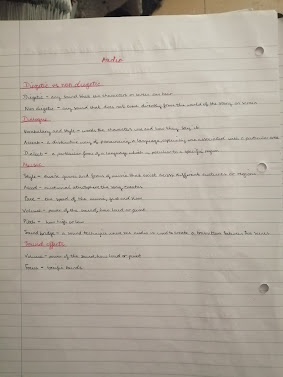 Audio
Diegetic vs non diegetic
Diegetic - any sound that the characters on screen can hear
Non diegetic - any sound that does not come directly from the world of the story on screen
Dialogue
Vocabulary and style - words the characters use and how they say it
Accent - a distinctive way of pronouncing a language, especially one associated with a particular area
Dialect - a particular form of a language which is peculiar to a specific region
Music
Style - music genres and forms of music that exist across different cultures or regions
Mood - emotional atmosphere the song creates
Pace - the speed of the music, fast and slow
Volume - power of the sound, how loud or quiet
Pitch - how high or low
Sound bridge - a sound technique where the audio is used to create a transition between two scenes
Sound effects
Volume - power of the sound, how loud or quiet
Focus - specific sounds